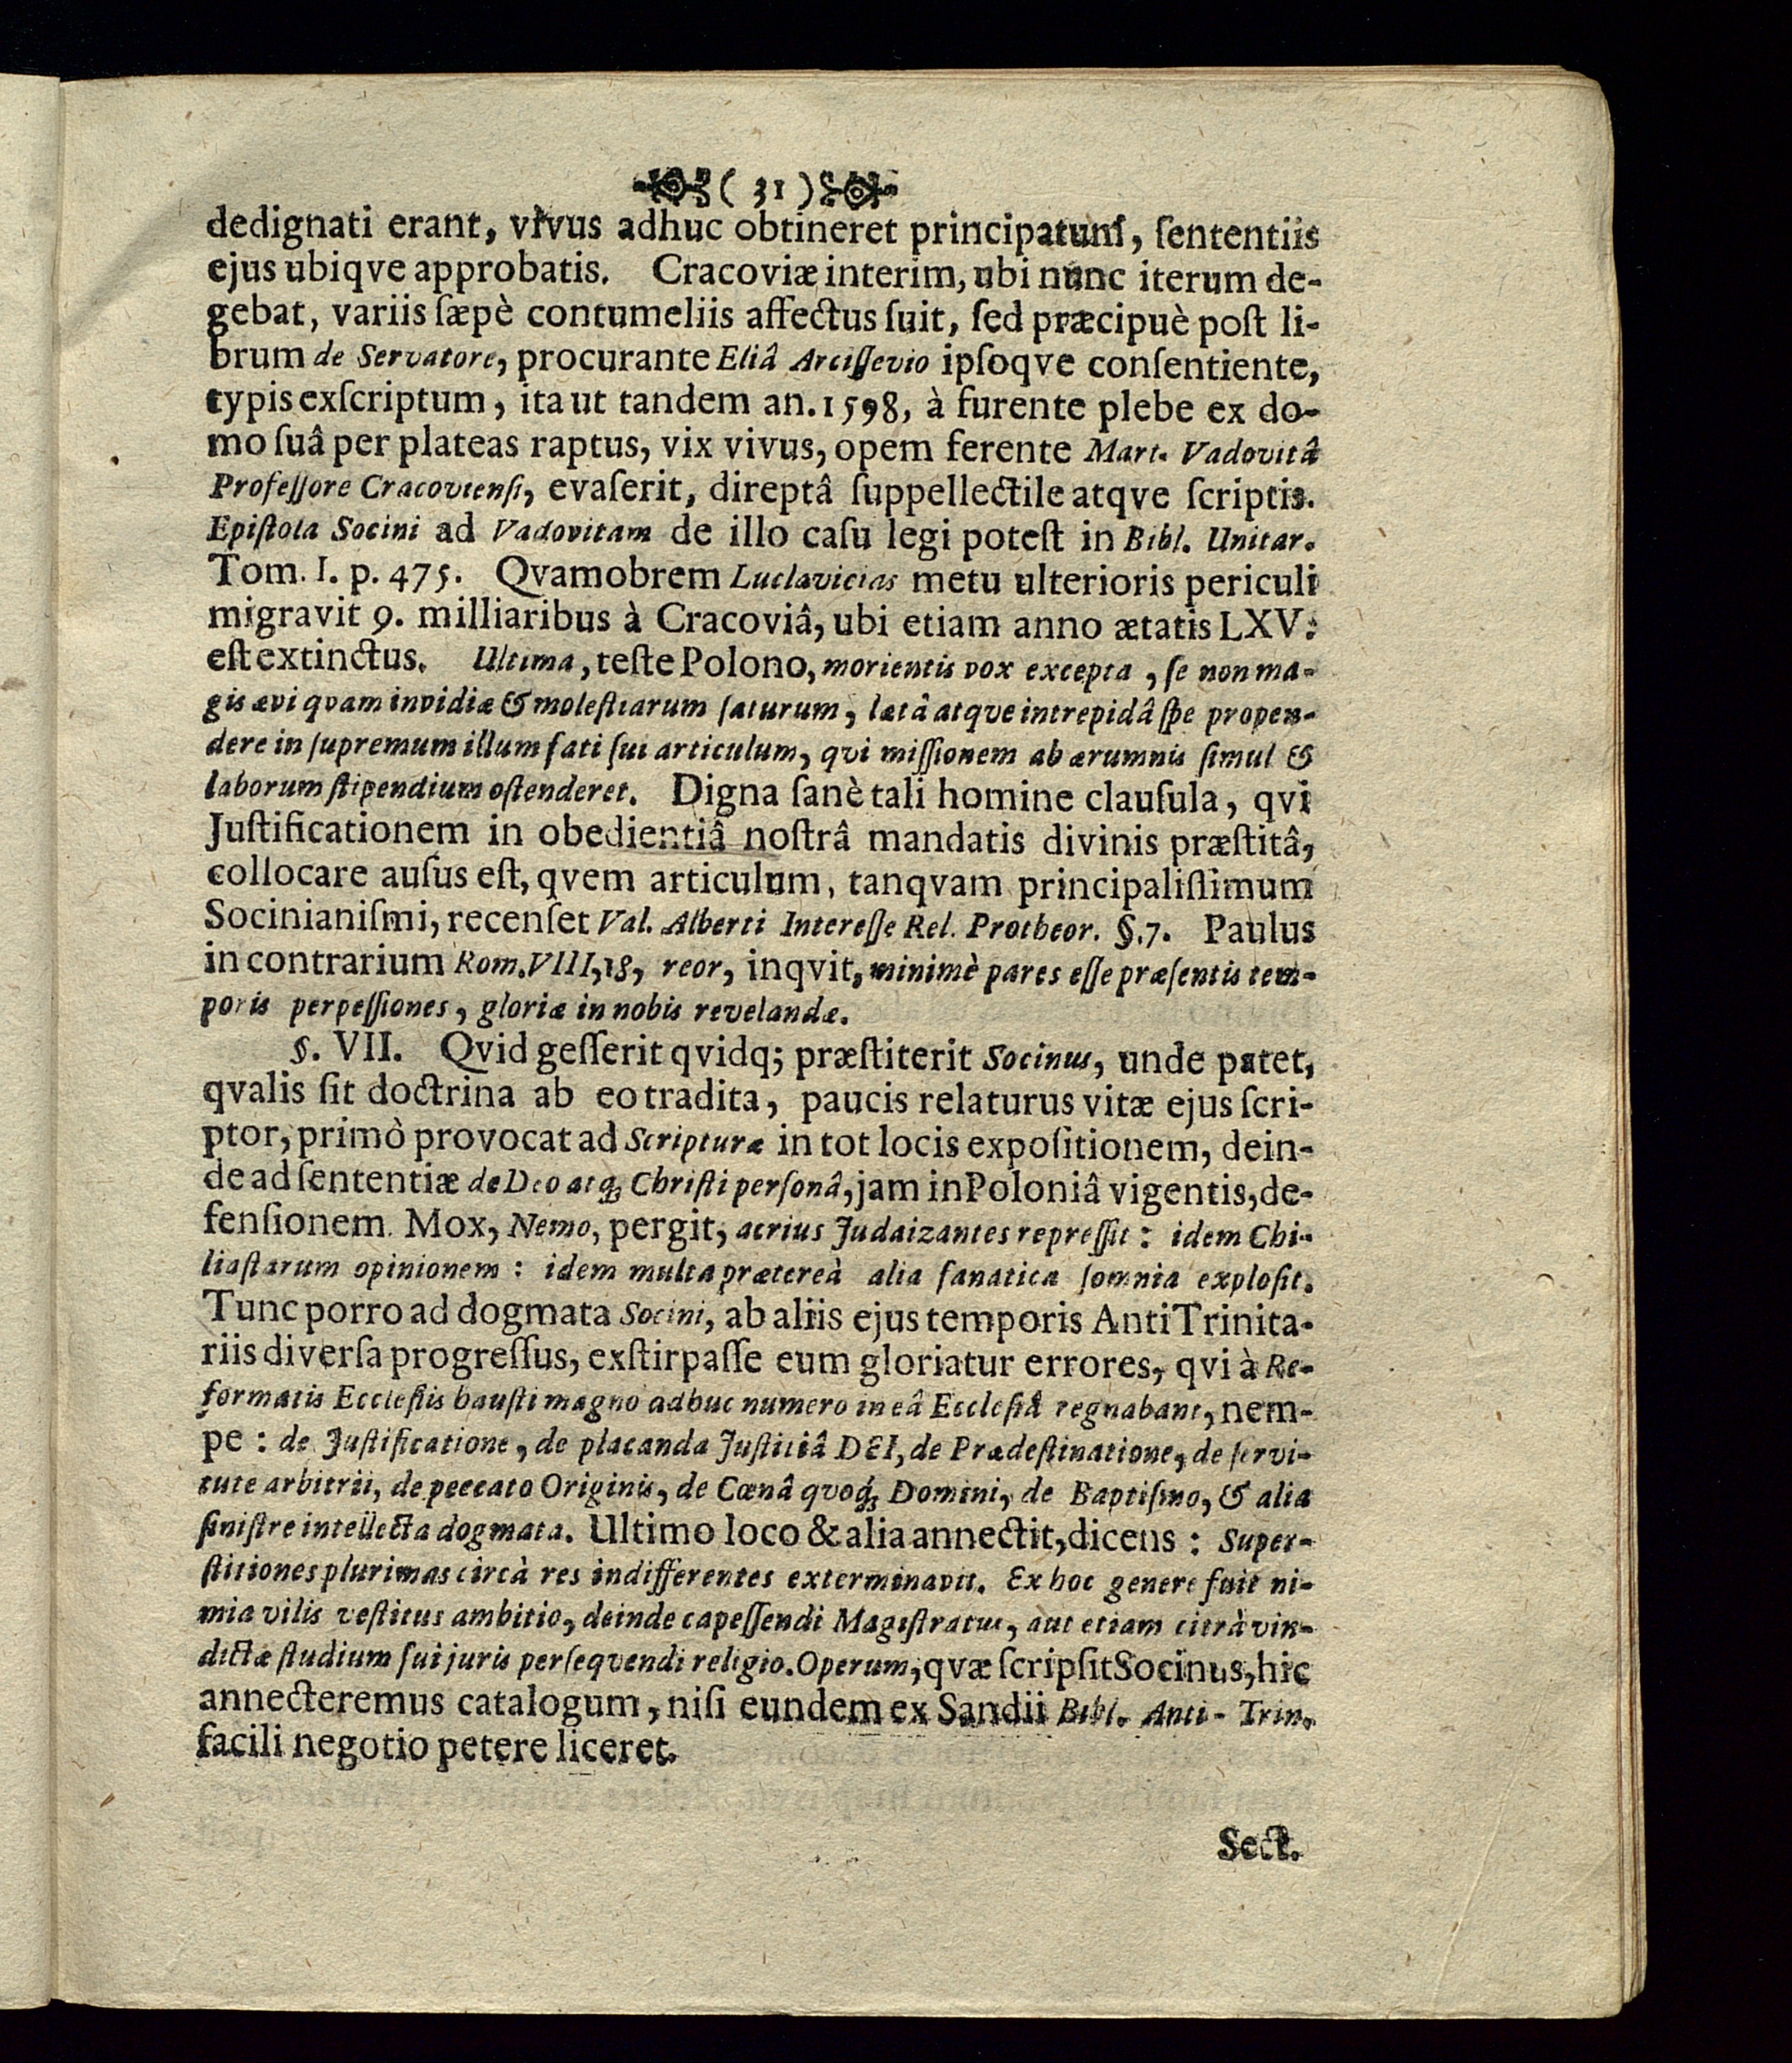 ( 31 )
dedignati erant, vivus adhuc obtineret principatum, ſententiis
ejus ubiqve approbatis. Cracoviæ interim, ubi nunc iterum de-
gebat, variis ſæpè contumeliis affectus fuit, ſed præcipuè poſt li-
brum de Servatore, procurante Eliâ Arciſſevio ipſoqve conſentiente,
typis exſcriptum, ita ut tandem an. 1598, à furente plebe ex do-
mo ſuâ per plateas raptus, vix vivus, opem ferente Mart. Vadovitâ
Profeſſore Cracovienſi, evaſerit, direptâ ſuppellectile atqve ſcriptis.
Epiſtola Socini ad Vadovitam de illo caſu legi poteſt in Bibl. Unitar.
Tom. I. p. 475. Qvamobrem Luclavicias metu ulterioris periculi
migravit 9. milliaribus à Cracoviâ, ubi etiam anno ætatis LXV.
eſt extinctus. Ultima, teſte Polono, morientis vox excepta, ſe non ma-
gis ævi qvam invidiæ & moleſtiarum ſaturum, lætâ atqve intrepidâ ſpe propen-
dere in ſupremum illum fati ſui articulum, qvi miſſionem ab ærumnis ſimul &
laborum ſtipendium oſtenderet. Digna ſanè tali homine clauſula, qvi
Juſtificationem in obedientiâ noſtrâ mandatis divinis præſtitâ,
collocare auſus eſt, qvem articulum, tanqvam principaliſſimum
Socinianiſmi, recenſet Val. Alberti Intereſſe Rel. Protheor. §. 7. Paulus
in contrarium Rom. VIII, 18, reor, inqvit, minimè pares eſſe præſentis tem-
poris perpeſſiones, gloriæ in nobis revelandæ.
§. VII. Qvid geſſerit qvidq; præſtiterit Socinus, unde patet,
qvalis ſit doctrina ab eo tradita, paucis relaturus vitæ ejus ſcri-
ptor, primò provocat ad Scripturæ in tot locis expoſitionem, dein-
de ad ſententiæ de Deo atq; Chriſti perſonâ, jam in Poloniâ vigentis, de-
fenſionem. Mox, Nemo, pergit, acrius Judaizantes repreſſit: idem Chi-
liaſtarum opinionem: idem multa prætereà alia fanatica ſomnia exploſit.
Tunc porro ad dogmata Socini, ab aliis ejus temporis AntiTrinita-
riis diverſa progreſſus, exſtirpaſſe eum gloriatur errores, qvi à Re-
formatis Eccleſiis hauſti magno adhuc numero in eâ Eccleſiâ regnabant, nem-
pe: de Juſtificatione, de placanda Juſtitiâ DEI, de Prædeſtinatione, de ſervi-
tute arbitrii, de peccato Originis, de Cœnâ qvoq́; Domini, de Baptiſmo, & alia
ſiniſtre intellecta dogmata. Ultimo loco & alia annectit, dicens: Super-
ſtitiones plurimas circà res indifferentes exterminavit. Ex hoc genere fuit ni-
mia vilis veſtitus ambitio, deinde capeſſendi Magiſtratus, aut etiam citrà vin-
dictæ ſtudium ſui juris perſeqvendi religio. Operum, qvæ ſcripſit Socinus, hic
annecteremus catalogum, niſi eundem ex Sandii Bibl. Anti-Trin.
facili negotio petere liceret.
Sect.